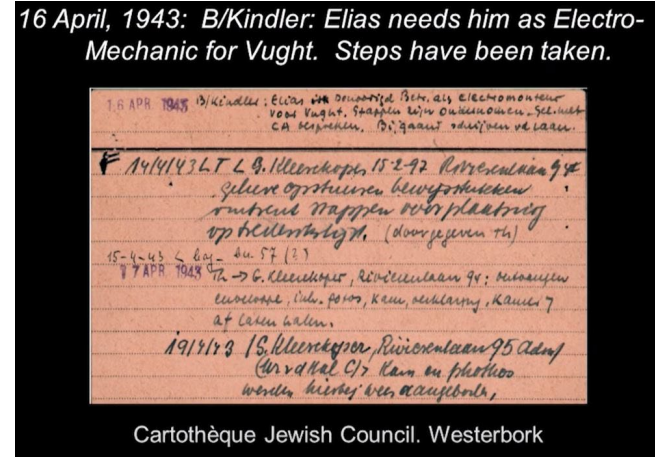 16 April, 1943:  B/Kindler: Elias needs him as Electro-
Mechanic for Vught.  Steps have been taken.
16 APR. 1943 B/Kindler: Elias Betr. als electromonteur
voor Vught. Stappen zijn ondernomen.
CA bespreken. Bijgaand schrijven
F 14/4/43 L T L G. Kleerekoper 15-2-97 Rivierenlaan
gelieve opsturen bewijsstukken
omtrent stappen overplaatsing
(doorgegeven Th)
15-4-43 57 (?)
17 APR. 1943 Th → G. Kleerekoper, Rivierenlaan 94: ontvangen
enveloppe, inh. fotos, kam, verklaring, Kamer 7
af laten halen.
19/4/43 / S. Kleerekoper, Rivierenlaan 95 Adam
Kam en photos
werden hierbij aangeboden,
Cartothèque Jewish Council. Westerbork